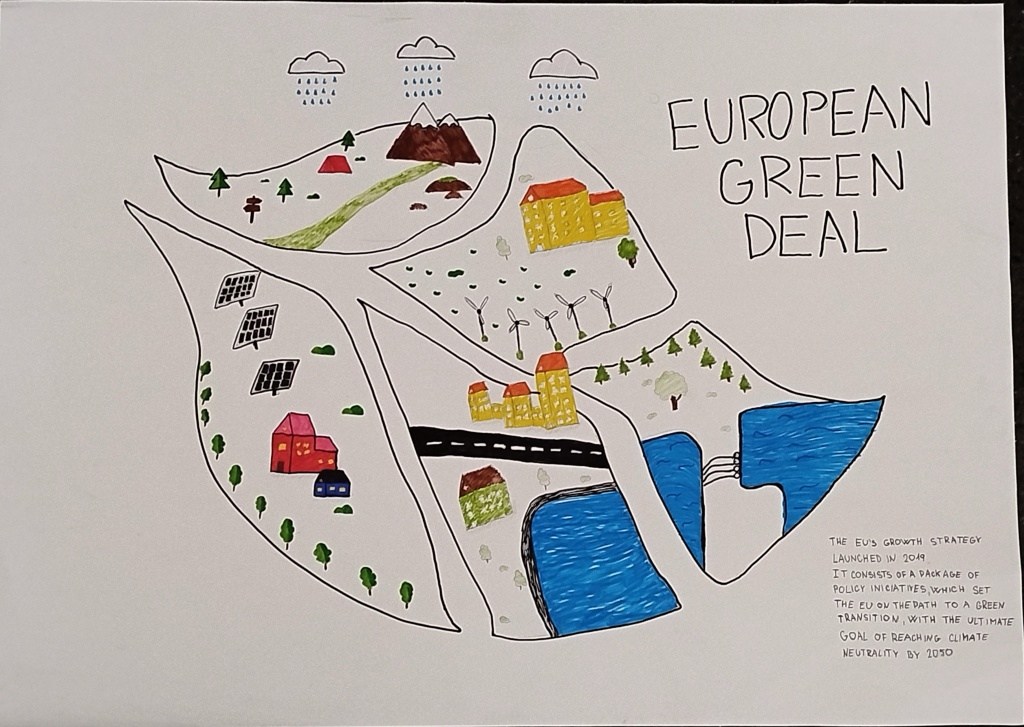 EUROPEAN
GREEN
DEAL
THE EU'S GROWTH STRATEGY
LAUNCHED IN 2019.
IT CONSISTS OF A PACKAGE OF
POLICY INICIATIVES, WHICH SET
THE EU ON THE PATH TO A GREEN
TRANSITION, WITH THE ULTIMATE
GOAL OF REACHING CLIMATE
NEUTRALITY BY 2050